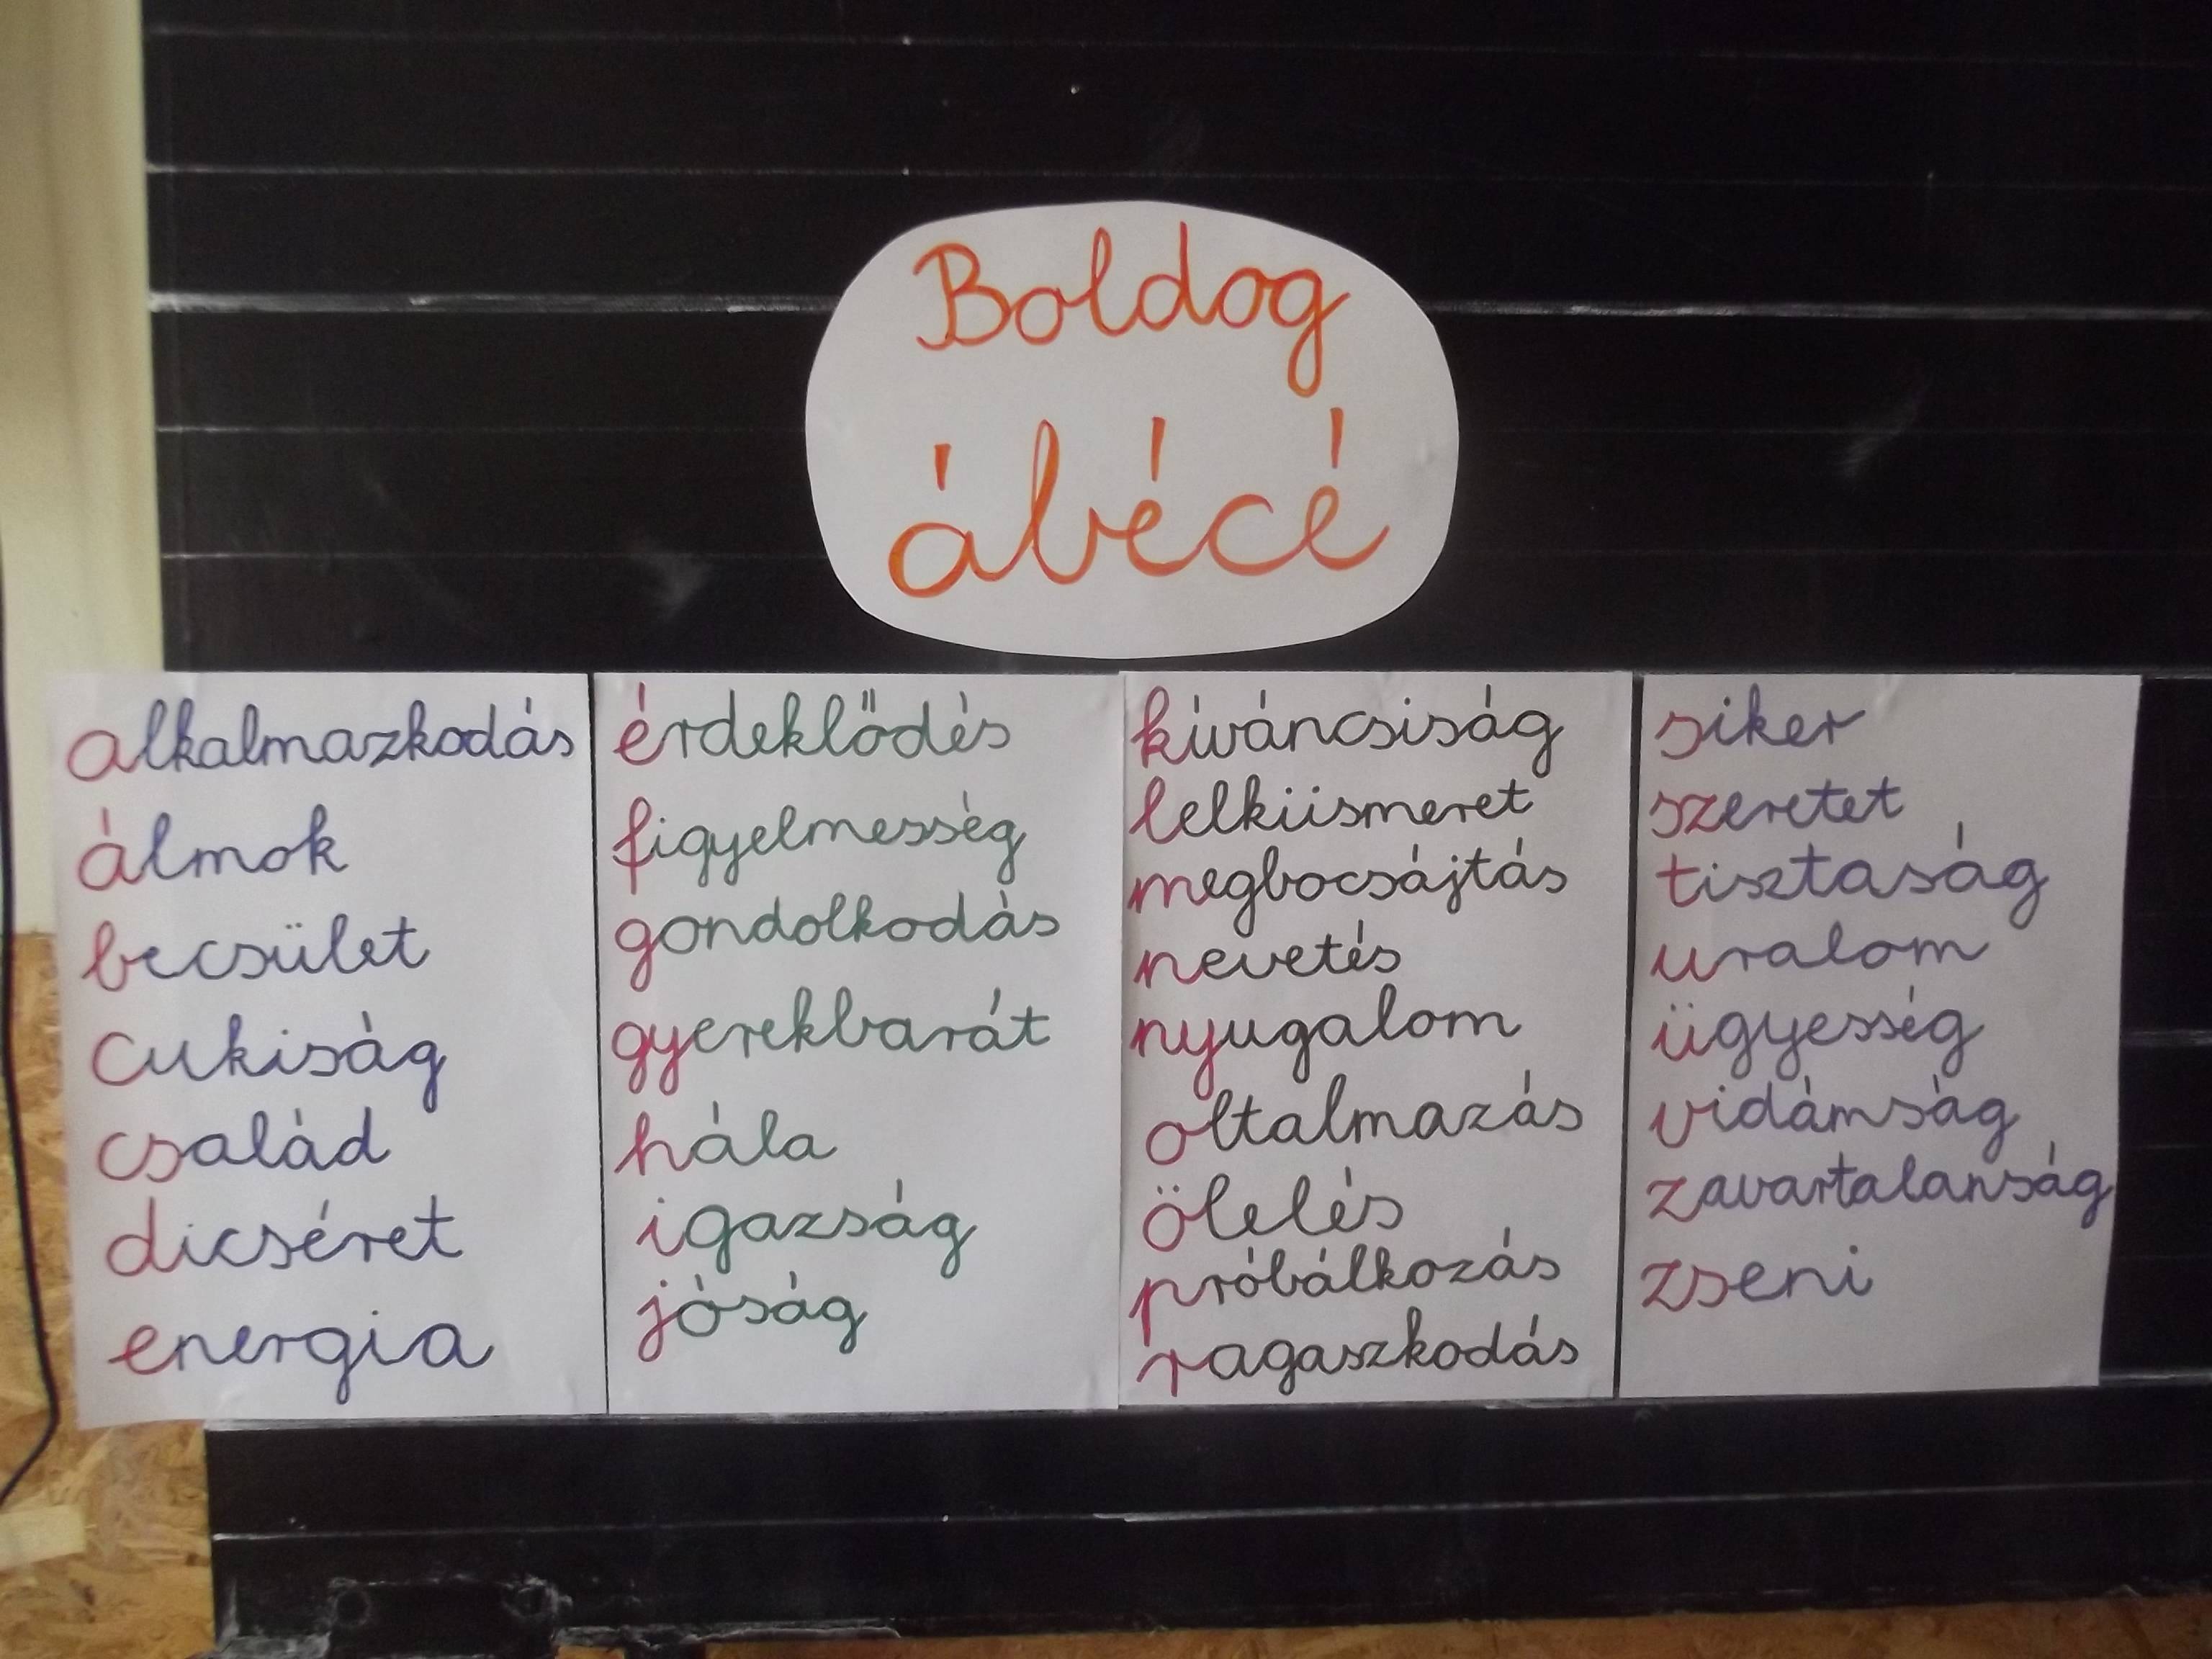 Boldog
ábécé
alkalmazkodás
álmok
becsület
cukiság
család
dicséret
energia
érdeklődés
figyelmesség
gondolkodás
gyerekbarát
hála
igazság
jóság
kíváncsiság
lelkiismeret
megbocsájtás
nevetés
nyugalom
oltalmazás
ölelés
próbálkozás
ragaszkodás
siker
szeretet
tisztaság
uralom
ügyesség
vidámság
zavartalanság
zseni